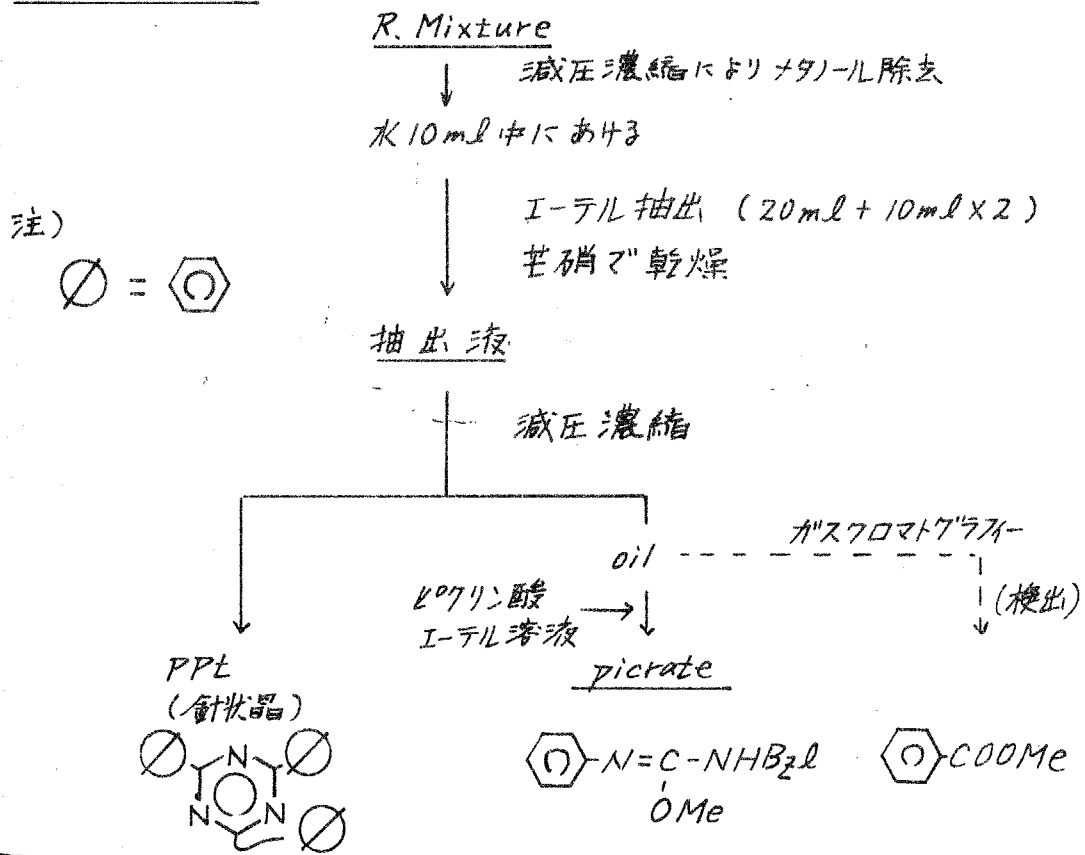 R. Mixture
減圧濃縮によりメタノール除去
水10ml中にあける
エーテル抽出 (20ml + 10ml×2)
芒硝で乾燥
注)
∅ =
抽出液
減圧濃縮
ガスクロマトグラフィー
oil
(検出)
ピクリン酸
エーテル溶液
PPt
(針状晶)
picrate
N
N N
-N=C-NHBzl
OMe
COOMe